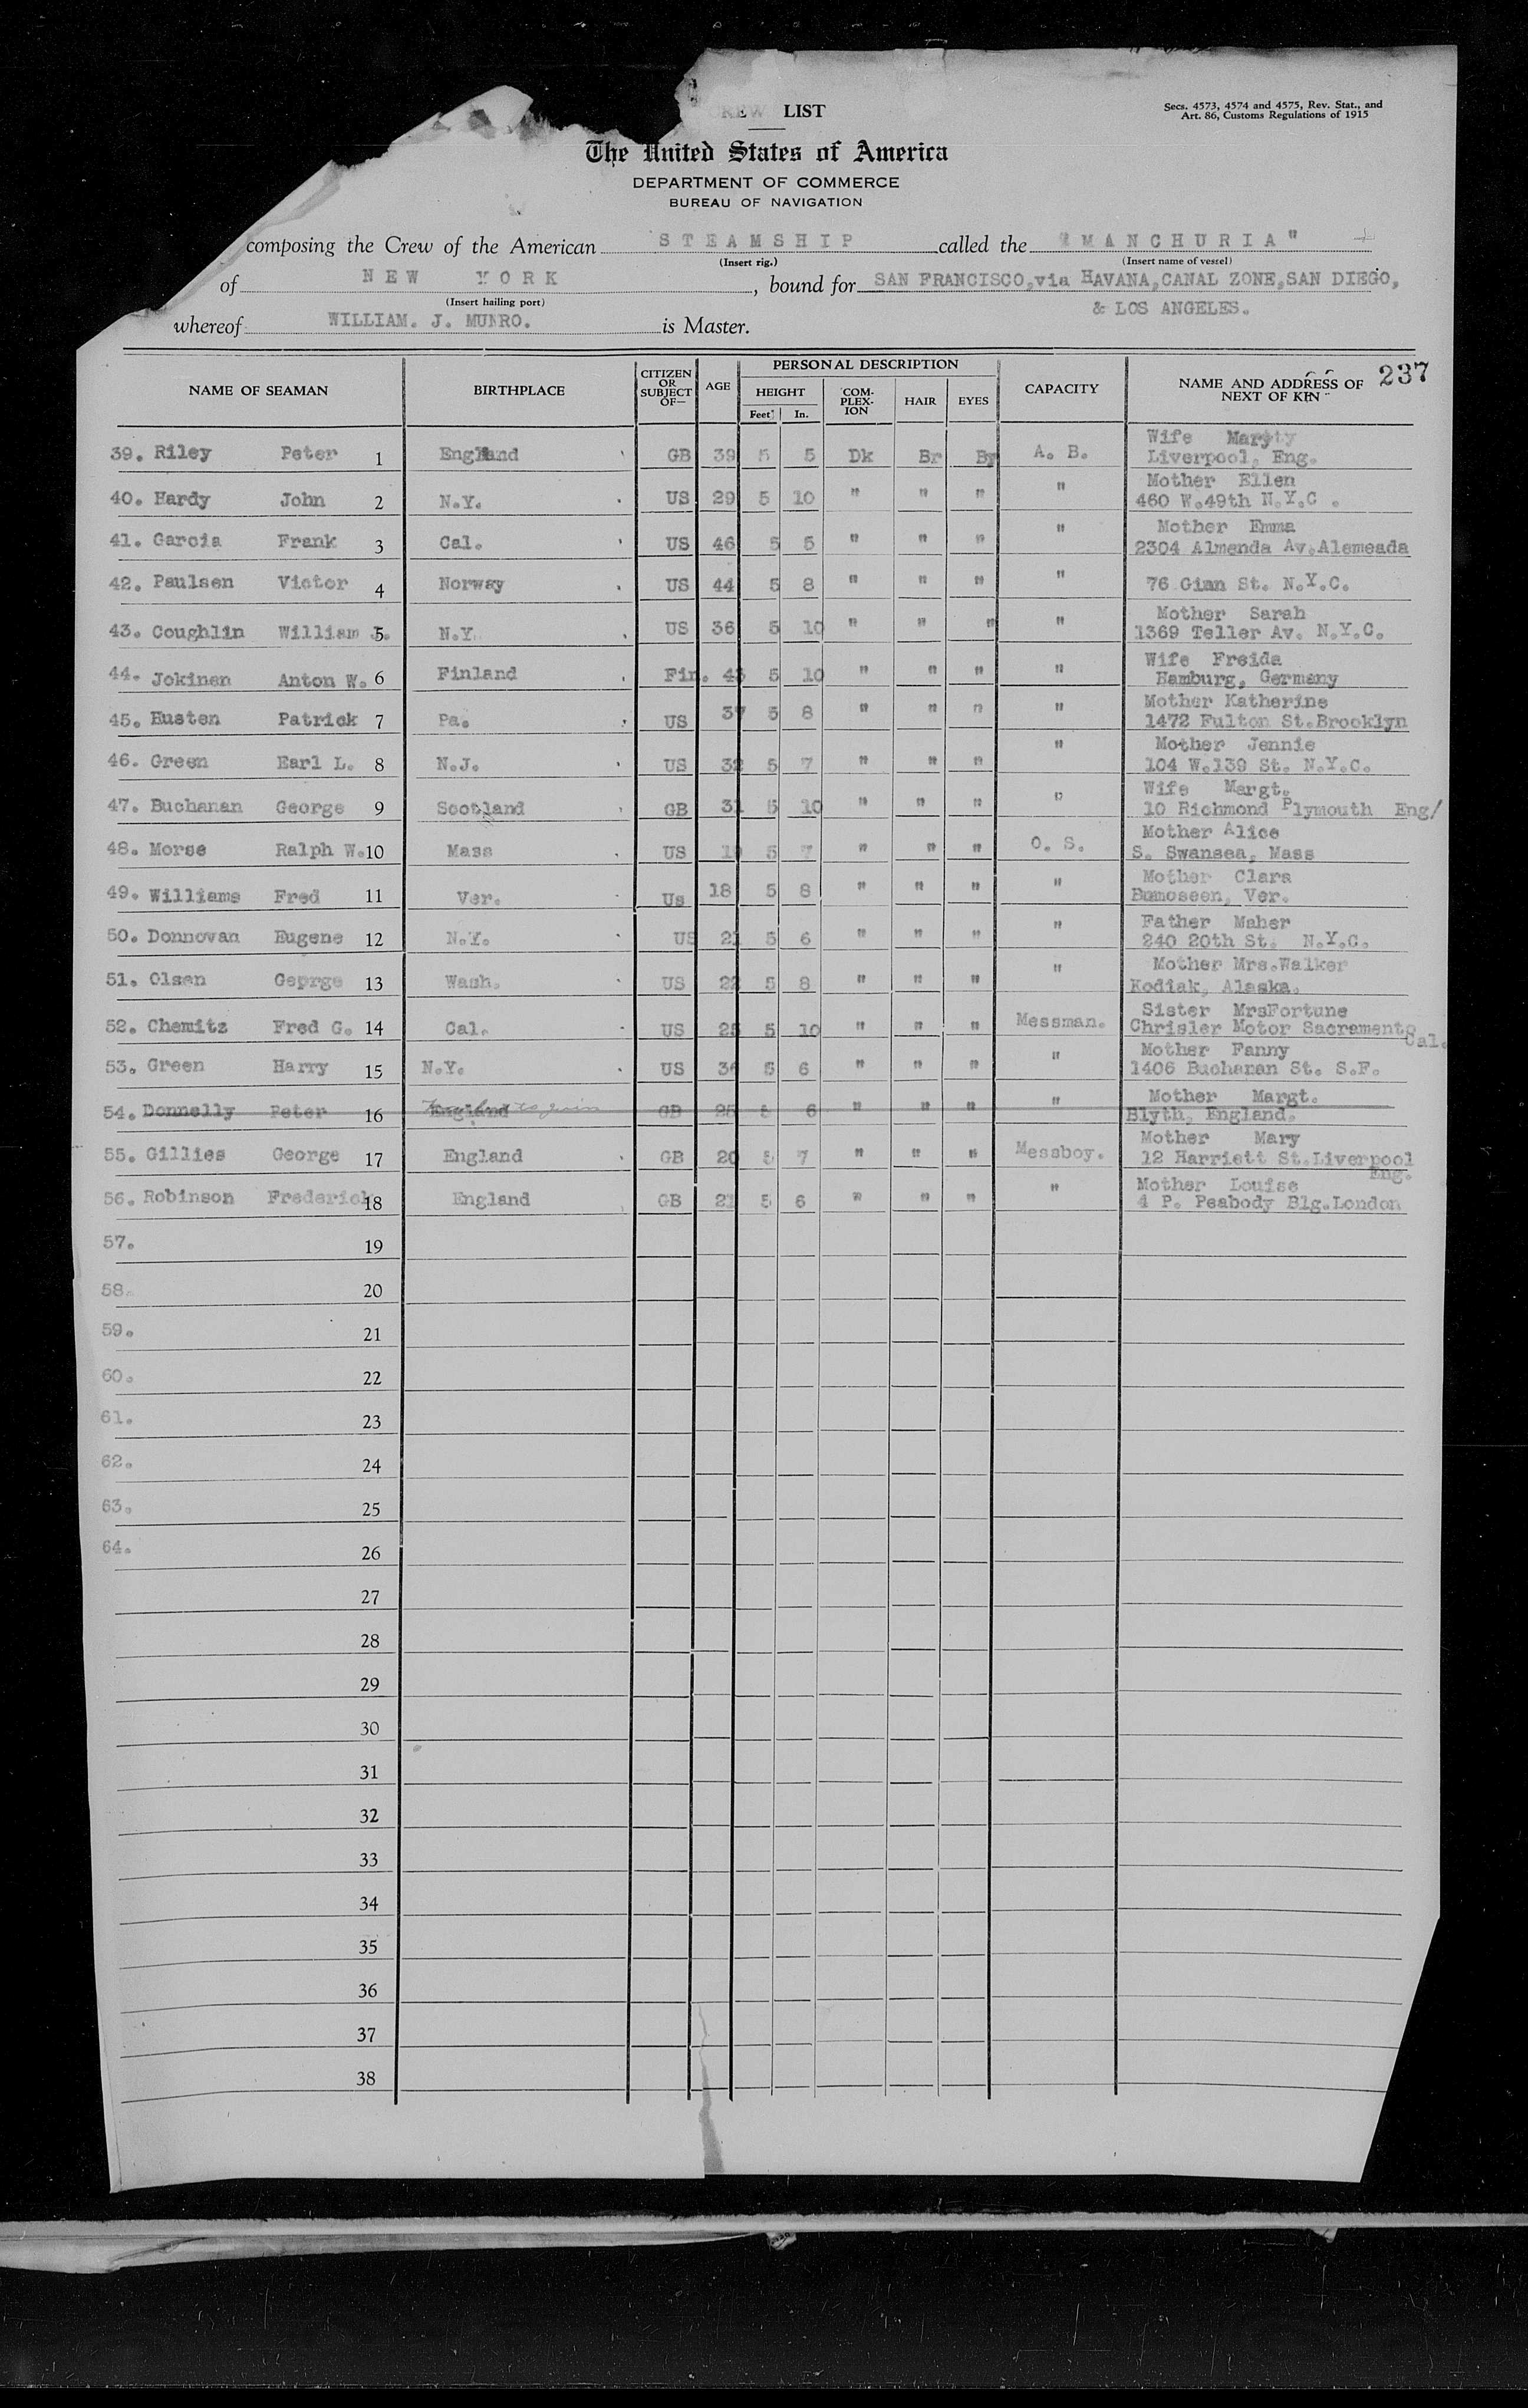 CREW LIST
Secs. 4573, 4574 and 4575, Rev. Stat., and
Art. 86, Customs Regulations of 1915
The United States of America
DEPARTMENT OF COMMERCE
BUREAU OF NAVIGATION
composing the Crew of the American STEAMSHIP called the "MANCHURIA"
(Insert rig.) (Insert name of vessel)
of NEW YORK, bound for SAN FRANCISCO, via HAVANA, CANAL ZONE, SAN DIEGO,
(Insert hailing port) & LOS ANGELES.
whereof WILLIAM. J. MUNRO. is Master.
237
NAME OF SEAMAN BIRTHPLACE CITIZEN OR SUBJECT OF— AGE PERSONAL DESCRIPTION HEIGHT Feet In. COM-PLEX-ION HAIR EYES CAPACITY NAME AND ADDRESS OF NEXT OF KIN
Wife
39. Riley Peter 1 England GB 39 5 5 Dk Br A. B. Liverpool, Eng.
Mother Ellen
40. Hardy John 2 N.Y. US 29 5 10 " " " " 460 W.49th N.Y.C .
Mother Emma
41. Garcia Frank 3 Cal. US 46 5 5 " " " " 2304 Almenda Av.Alemeada
42. Paulsen Victor 4 Norway US 44 5 8 " " " " 76 St. N.Y.C.
Mother Sarah
43. Coughlin William J. 5 N.Y. US 36 5 10 " " " " 1369 Teller Av. N.Y.C.
Wife Freida
44. Jokinen Anton W. 6 Finland Fin. 43 5 10 " " " " Hamburg, Germany
Mother Katherine
45. Husten Patrick 7 Pa. US 37 5 8 " " " " 1472 Fulton St.Brooklyn
Mother Jennie
46. Green Earl L. 8 N.J. US 32 5 7 " " " " 104 W.139 St. N.Y.C.
Wife Margt.
47. Buchanan George 9 Scotland GB 31 5 10 " " " " 10 Richmond Plymouth Eng/
Mother Alice
48. Morse Ralph W. 10 Mass US 19 5 7 " " " O. S. S. Swansea, Mass
Mother Clara
49. Williams Fred 11 Ver. Us 18 5 8 " " " " Bomoseen, Ver.
Father Maher
50. Donnovan Eugene 12 N.Y. US 21 5 6 " " " " 240 20th St. N.Y.C.
Mother Mrs.Walker
51. Olsen Geprge 13 Wash. US 22 5 8 " " " " Kodiak, Alaska.
Sister MrsFortune
52. Chemitz Fred G. 14 Cal. US 25 5 10 " " " Messman. Chrisler Motor Sacramento
Cal.
Mother Fanny
53. Green Harry 15 N.Y. US 5 6 " " " " 1406 Buchanan St. S.F.
Mother Margt.
54. Donnelly Peter 16 England GB 25 5 6 " " " " Blyth, England.
Mother Mary
55. Gillies George 17 England GB 20 5 7 " " " Messboy. 12 Harriett St.Liverpool
Eng.
Mother Louise
56. Robinson Frederick 18 England GB 21 5 6 " " " " 4 P. Peabody Blg.London
57. 19
58. 20
59. 21
60. 22
61. 23
62. 24
63. 25
64. 26
27
28
29
30
31
32
33
34
35
36
37
38